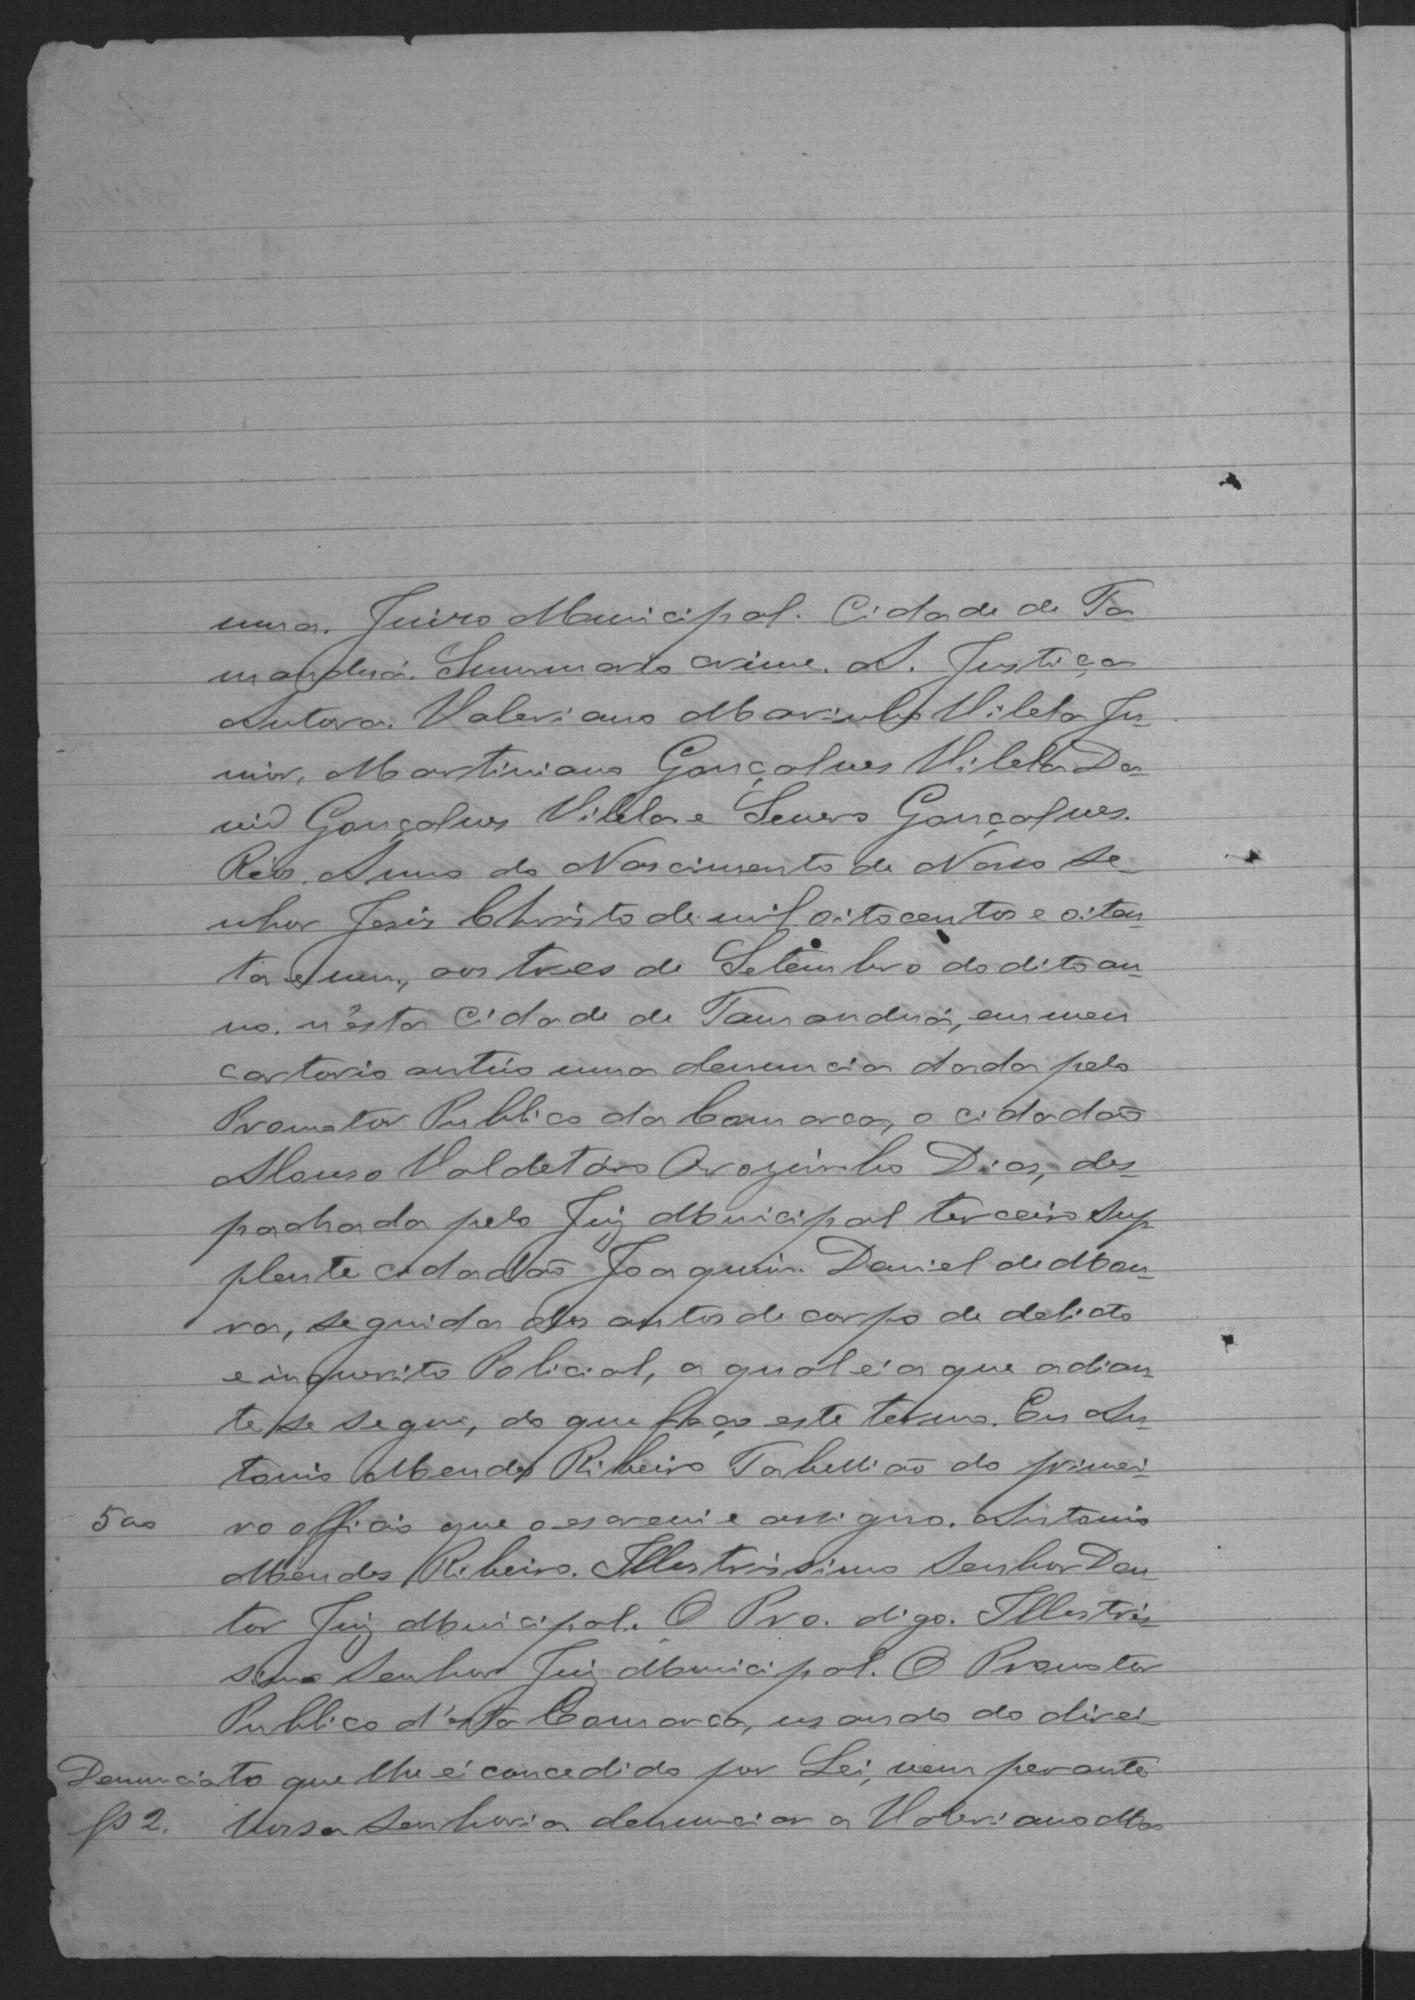 uma. Juizo Municipal. Cidade de Ta
manduá. Summario crime. A. Justiça
Autora. Valeriano Marinho Vilela Ju-
nior, Martiniano Gonçalves Vilella Da-
vid Gonçalves Vilela e Severo Gonçalves.
Réos. Anno do Nascimento de Nosso Se-
nhor Jesús Christo de mil oitocentos e oiten-
ta e um, aos tres de Setembro do dito an-
no. n'esta Cidade de Tamanduá, em meu
cartorio autúo uma denuncia dada pelo
Promotor Publico da Comarca, o cidadão
Alonso Valdetáro Dias, des-
pachada pelo Juiz Municipal terceiro Sup
plente cidadão Joaquim Daniel de Mou-
ra, seguida dos autos de corpo de delicto
e inquerito Policial, a qual é a que adian-
te se segue, do que faço este termo. Eu An-
tonio Mendes Ribeiro Tabellião do primei-
500 ro officio que o escrevi e assigno. Antonio
Mendes Ribeiro. Illustrissimo Senhor Dou-
tor Juiz Municipal. O Pro. digo. Illustris-
simo Senhor Juiz Municipal. O Promotor
Publico d'esta Comarca, usando do direi
Denuncia to que lhe é concedido por Lei, vem perante
fs 2. Vossa Senhoria denunciar a Valeriano Ma